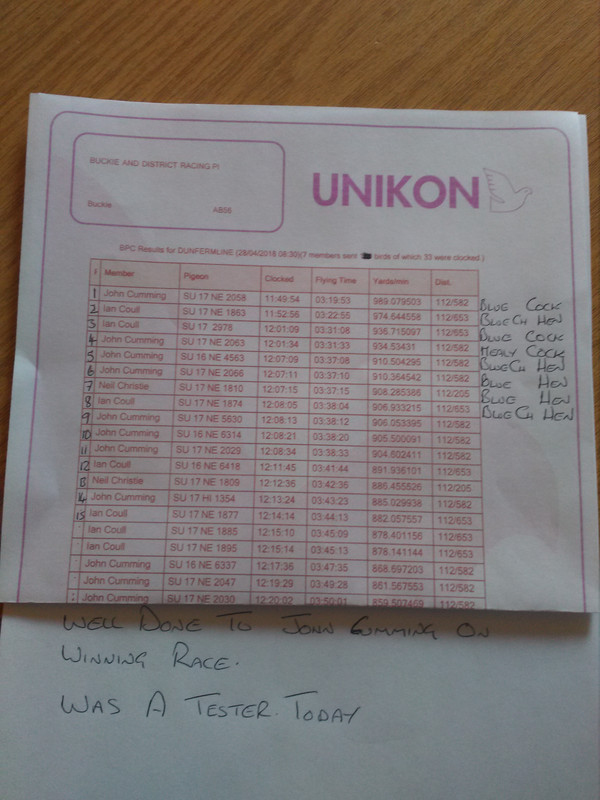 BUCKIE AND DISTRICT RACING PI
Buckie AB56
UNIKON
BPC Results for DUNFERMLINE (28/04/2018 08:30)(7 members sent birds of which 33 were clocked.)
Member Pigeon Clocked Flying Time Yards/min Dist.
1 John Cumming SU 17 NE 2058 11:49:54 03:19:53 989.079503 112/582 BLUE COCK
2 Ian Coull SU 17 NE 1863 11:52:56 03:22:56 974.644558 112/653 BLUECH HEN
3 Ian Coull SU 17 2978 12:01:09 03:31:08 936.715097 112/653 BLUE COCK
4 John Cumming SU 17 NE 2063 12:01:34 03:31:33 934.53431 112/582 MEALY COCK
5 John Cumming SU 16 NE 4563 12:07:09 03:37:08 910.504295 112/582 BLUECH HEN
6 John Cumming SU 17 NE 2066 12:07:11 03:37:10 910.364542 112/582 BLUE HEN
7 Neil Christie SU 17 NE 1810 12:07:15 03:37:15 908.285386 112/205 BLUE HEN
8 Ian Coull SU 17 NE 1874 12:08:05 03:38:04 906.933215 112/653 BLUECH HEN
9 John Cumming SU 17 NE 5630 12:08:13 03:38:12 906.053395 112/582
10 John Cumming SU 16 NE 6314 12:08:21 03:38:20 905.500091 112/582
11 John Cumming SU 17 NE 2029 12:08:34 03:38:33 904.602411 112/582
12 Ian Coull SU 16 NE 6418 12:11:45 03:41:44 891.936101 112/653
13 Neil Christie SU 17 NE 1809 12:12:36 03:42:36 886.455526 112/205
14 John Cumming SU 17 HI 1354 12:13:24 03:43:23 885.029936 112/582
15 Ian Coull SU 17 NE 1877 12:14:14 03:44:13 882.057557 112/653
Ian Coull SU 17 NE 1885 12:15:10 03:45:09 878.401156 112/653
Ian Coull SU 17 NE 1895 12:15:14 03:45:13 878.141144 112/653
John Cumming SU 16 NE 6337 12:17:36 03:47:35 868.697203 112/582
John Cumming SU 17 NE 2047 12:19:29 03:49:28 861.567553 112/582
John Cumming SU 17 NE 2030 12:20:02 03:50:01 859.507469 112/582
WELL DONE TO JOHN CUMMING ON
WINNING RACE.
WAS A TESTER. TODAY